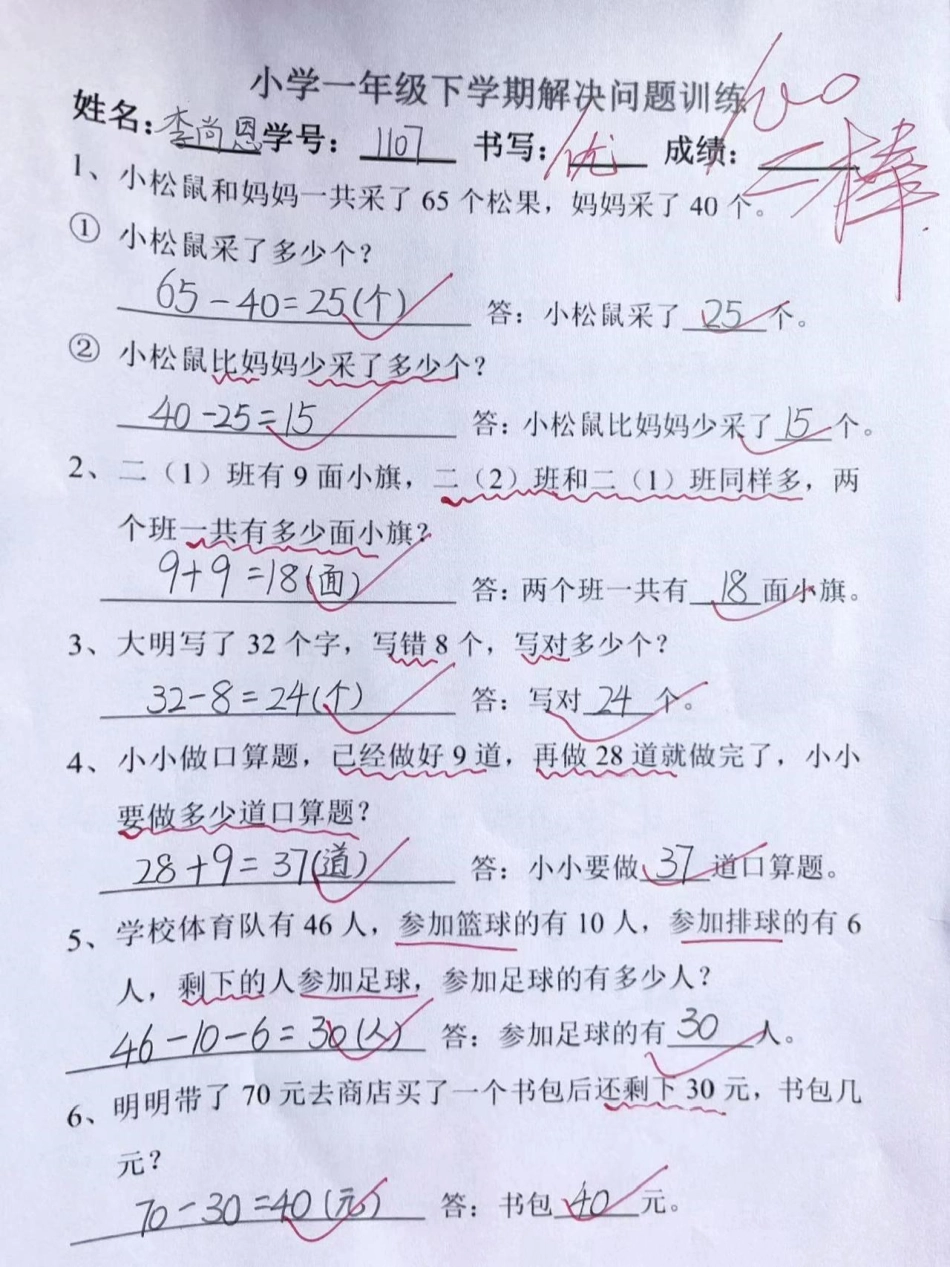 小学一年级下学期解决问题训练
100
姓名:李尚恩学号:1107 书写:优 成绩:
棒
1、小松鼠和妈妈一共采了 65 个松果，妈妈采了 40 个。
① 小松鼠采了多少个？
65-40=25(个) 答：小松鼠采了 25 个。
② 小松鼠比妈妈少采了多少个？
40-25=15 答：小松鼠比妈妈少采了 15 个。
2、二（1）班有 9 面小旗，二（2）班和二（1）班同样多，两
个班一共有多少面小旗？
9+9=18(面) 答：两个班一共有 18 面小旗。
3、大明写了 32 个字，写错 8 个，写对多少个？
32-8=24(个) 答：写对 24 个。
4、小小做口算题，已经做好 9 道，再做 28 道就做完了，小小
要做多少道口算题？
28+9=37(道) 答：小小要做 37 道口算题。
5、学校体育队有 46 人，参加篮球的有 10 人，参加排球的有 6
人，剩下的人参加足球，参加足球的有多少人？
46-10-6=30(人) 答：参加足球的有 30 人。
6、明明带了 70 元去商店买了一个书包后还剩下 30 元，书包几
元？
70-30=40(元) 答：书包 40 元。